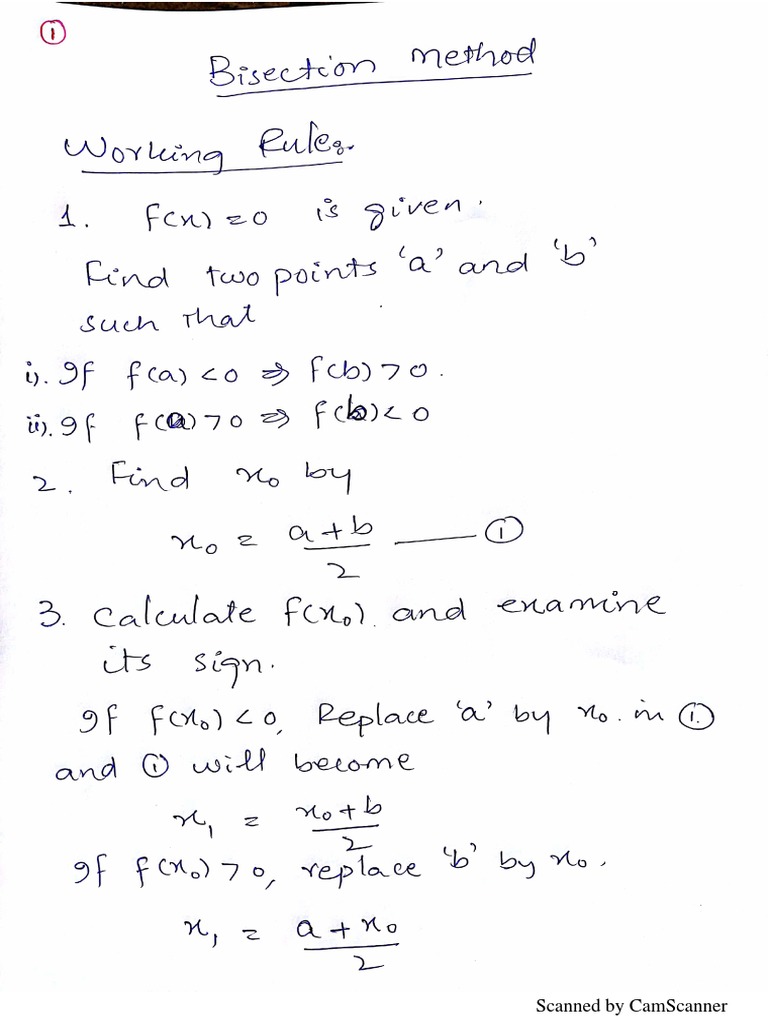 ①
Bisection method
Working Rules.
1. f(x) = 0 is given.
Find two points 'a' and 'b'
such that
i). If f(a) < 0 ⇒ f(b) > 0.
ii). If f(a) > 0 ⇒ f(b) < 0
2. Find x₀ by
x₀ = (a + b)/2 —— ①
3. Calculate f(x₀) and examine
its sign.
If f(x₀) < 0, Replace 'a' by x₀. in ①
and ① will become
x₁ = (x₀ + b)/2
If f(x₀) > 0, replace 'b' by x₀.
x₁ = (a + x₀)/2
Scanned by CamScanner